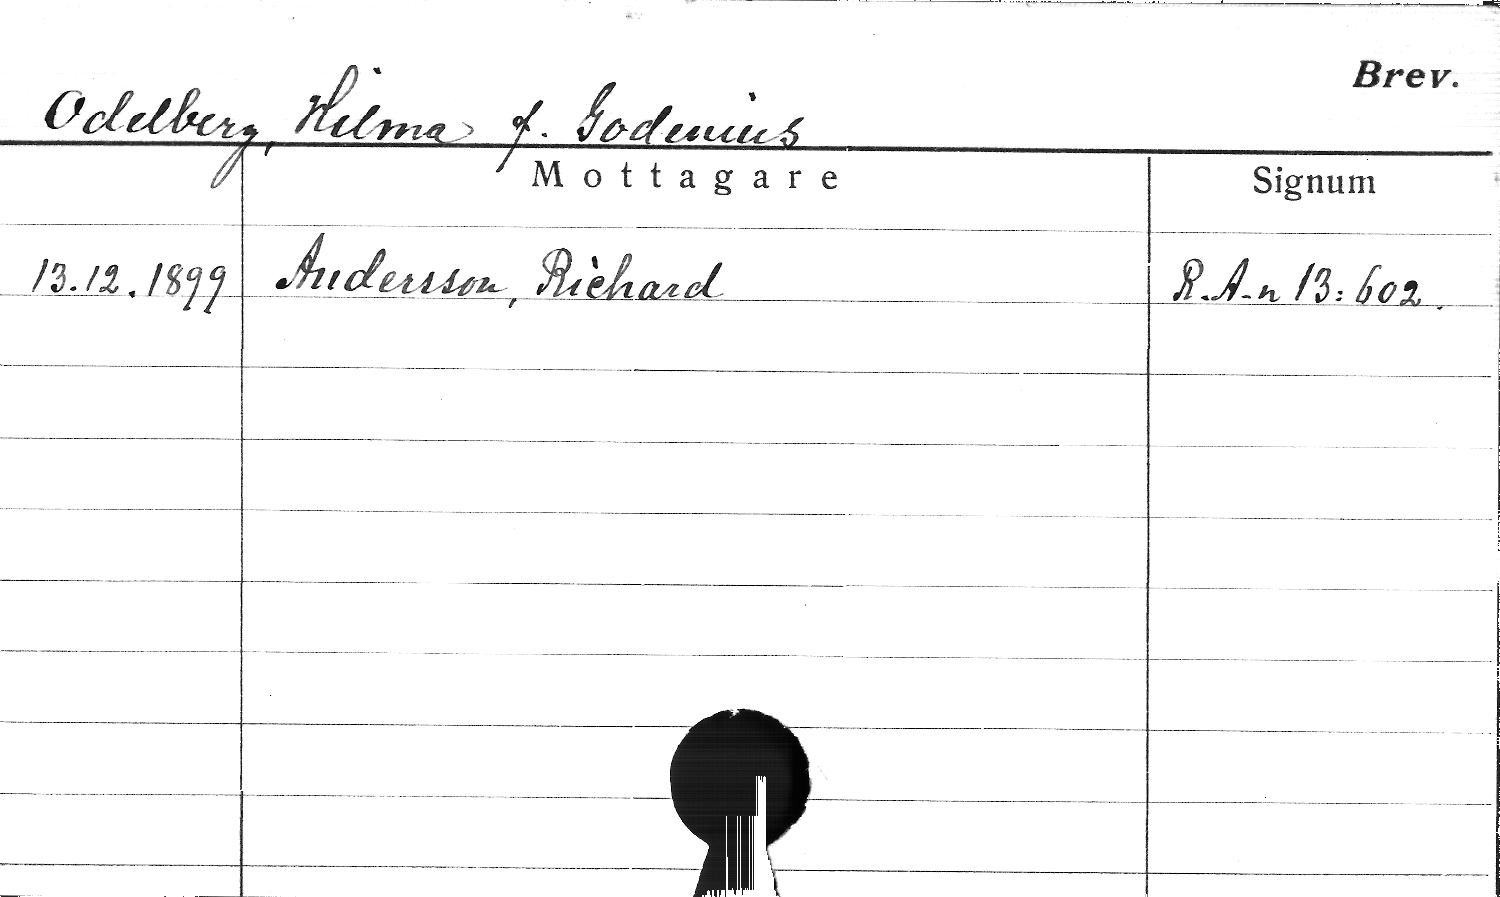 Brev.
Odelberg, Hilma f. Godenius
Mottagare
Signum
13.12.1899 Andersson, Richard R.A.n 13:602.